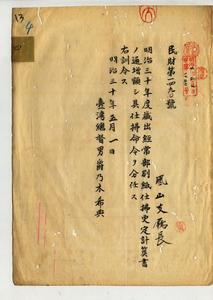 民財第一四九〇號
鳳山支廳長
明治三十年度歳出經常部別紙仕拂更定計算書
ノ通增額シ其仕拂命令ヲ分任ス
右訓令ス
明治三十年五月一日
臺灣總督男爵乃木希典